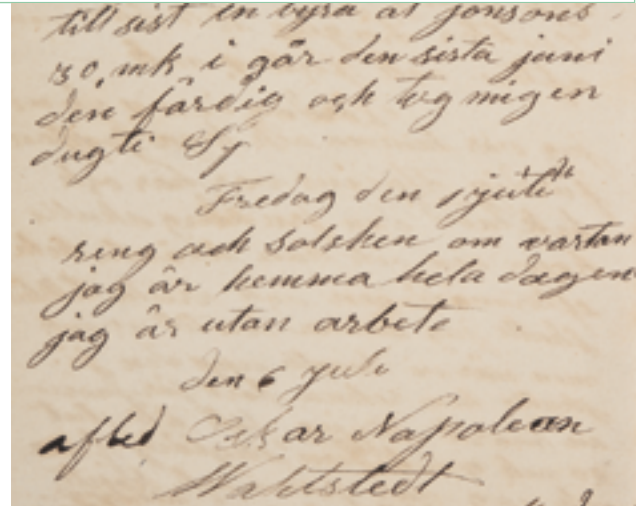 till sist en byrå åt jonsons
30 mk i går den sista juni
den färdig och tog mig en
dugti
Fredag den juli
reng och solsken om vartan
jag är hemma hela dagen
jag är utan arbete
den 6 juli
afled Oskar Napoleon
Wahlstedt